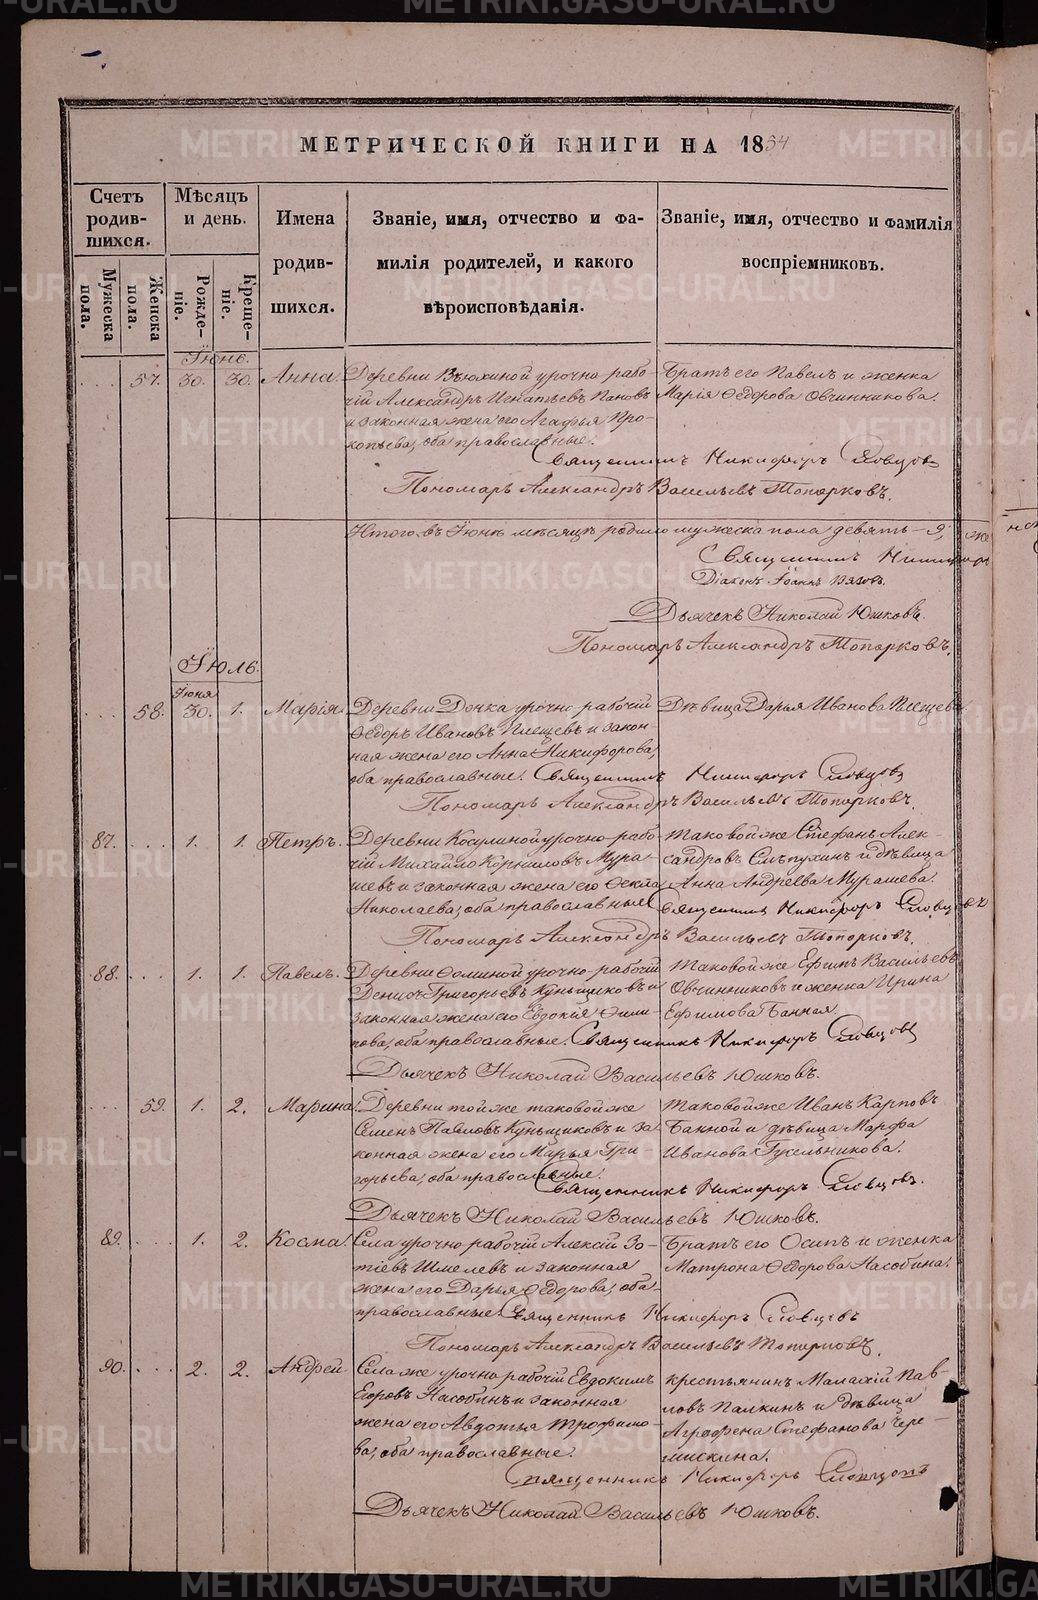 МЕТРИЧЕСКОЙ КНИГИ НА 1864
Счетъ родив-шихся.
Мужеска пола.
Женска пола.
Мѣсяцъ и день.
Рожде-ніе.
Креще-ніе.
Имена родив-шихся.
Званіе, имя, отчество и фа-
милія родителей, и какого
вѣроисповѣданія.
Званіе, имя, отчество и фамилія
воспріемниковъ.
Іюнь.
57. 30. 30. Анна.
Деревни Вьюхиной урочно-рабо-
чій Александръ Игнатьевъ Пановъ
и законная жена его Агафья Про-
копьева, оба православные.
Братъ его Павелъ и женка
Марія Ѳедорова Овчинникова.
Священникъ Никифоръ Словцовъ
Пономарь Александръ Васильевъ Топорковъ.
Итого въ Іюнѣ мѣсяцѣ родило мужеска пола девять - 9, же
Священникъ Никифоръ
Діаконъ Іоаннъ
Дьячекъ Николай Юшковъ.
Пономарь Александръ Топорковъ.
Іюль.
Іюня
58. 30. 1. Марія.
Деревни урочно-рабочій
Ѳедоръ Ивановъ Плещевъ и закон-
ная жена его Анна Никифорова,
оба православные.
Дѣвица Дарья Иванова Плещева.
Священникъ Никифоръ Словцовъ
Пономарь Александръ Васильевъ Топорковъ.
87. 1. 1. Петръ.
Деревни Косулиной урочно-рабо-
чій Михайло Корниловъ Мура-
шевъ и законная жена его Ѳекла
Николаева, оба православные.
Таковой же Стефанъ Алек-
сандровъ Слѣпухинъ и дѣвица
Анна Андреева Мурашева.
Священникъ Никифоръ Словцовъ
Пономарь Александръ Васильевъ Топорковъ.
88. 1. 1. Павелъ.
Деревни Ѳоминой урочно-рабочій
Денисъ Григорьевъ Куньщиковъ и
законная жена его Евдокія Фили-
пова, оба православные.
Таковой же Ефимъ Васильевъ
Овчинниковъ и женка Ирина
Ефимова Банная.
Священникъ Никифоръ Словцовъ
Дьячекъ Николай Васильевъ Юшковъ.
59. 1. 2. Марина.
Деревни той же таковой же
Семенъ Павловъ Куньщиковъ и за-
конная жена его Марья Гри-
горьева, оба православные.
Таковой же Иванъ Карповъ
Банной и дѣвица Марфа
Иванова Гусельникова.
Священникъ Никифоръ Словцовъ.
Дьячекъ Николай Васильевъ Юшковъ.
89. 1. 2. Косма.
Села урочно рабочій Алексій Зо-
тіевъ Шмелевъ и законная
жена его Дарья Ѳедорова, оба
православные.
Братъ его Осипъ и женка
Матрона Ѳедорова Насобина.
Священникъ Никифоръ Словцовъ
Пономарь Александръ Васильевъ Топорковъ.
90. 2. 2. Андрей.
Села же урочно рабочій Евдокимъ
Егоровъ Насобинъ и законная
жена его Авдотья Трофимо-
ва, оба православные.
крестьянинъ Малахій Пав-
ловъ Палкинъ и дѣвица
Агрофена Стефанова Чере-
мискина.
Священникъ Никифоръ Словцовъ
Дьячекъ Николай Васильевъ Юшковъ.
METRIKI.GASO-URAL.RU